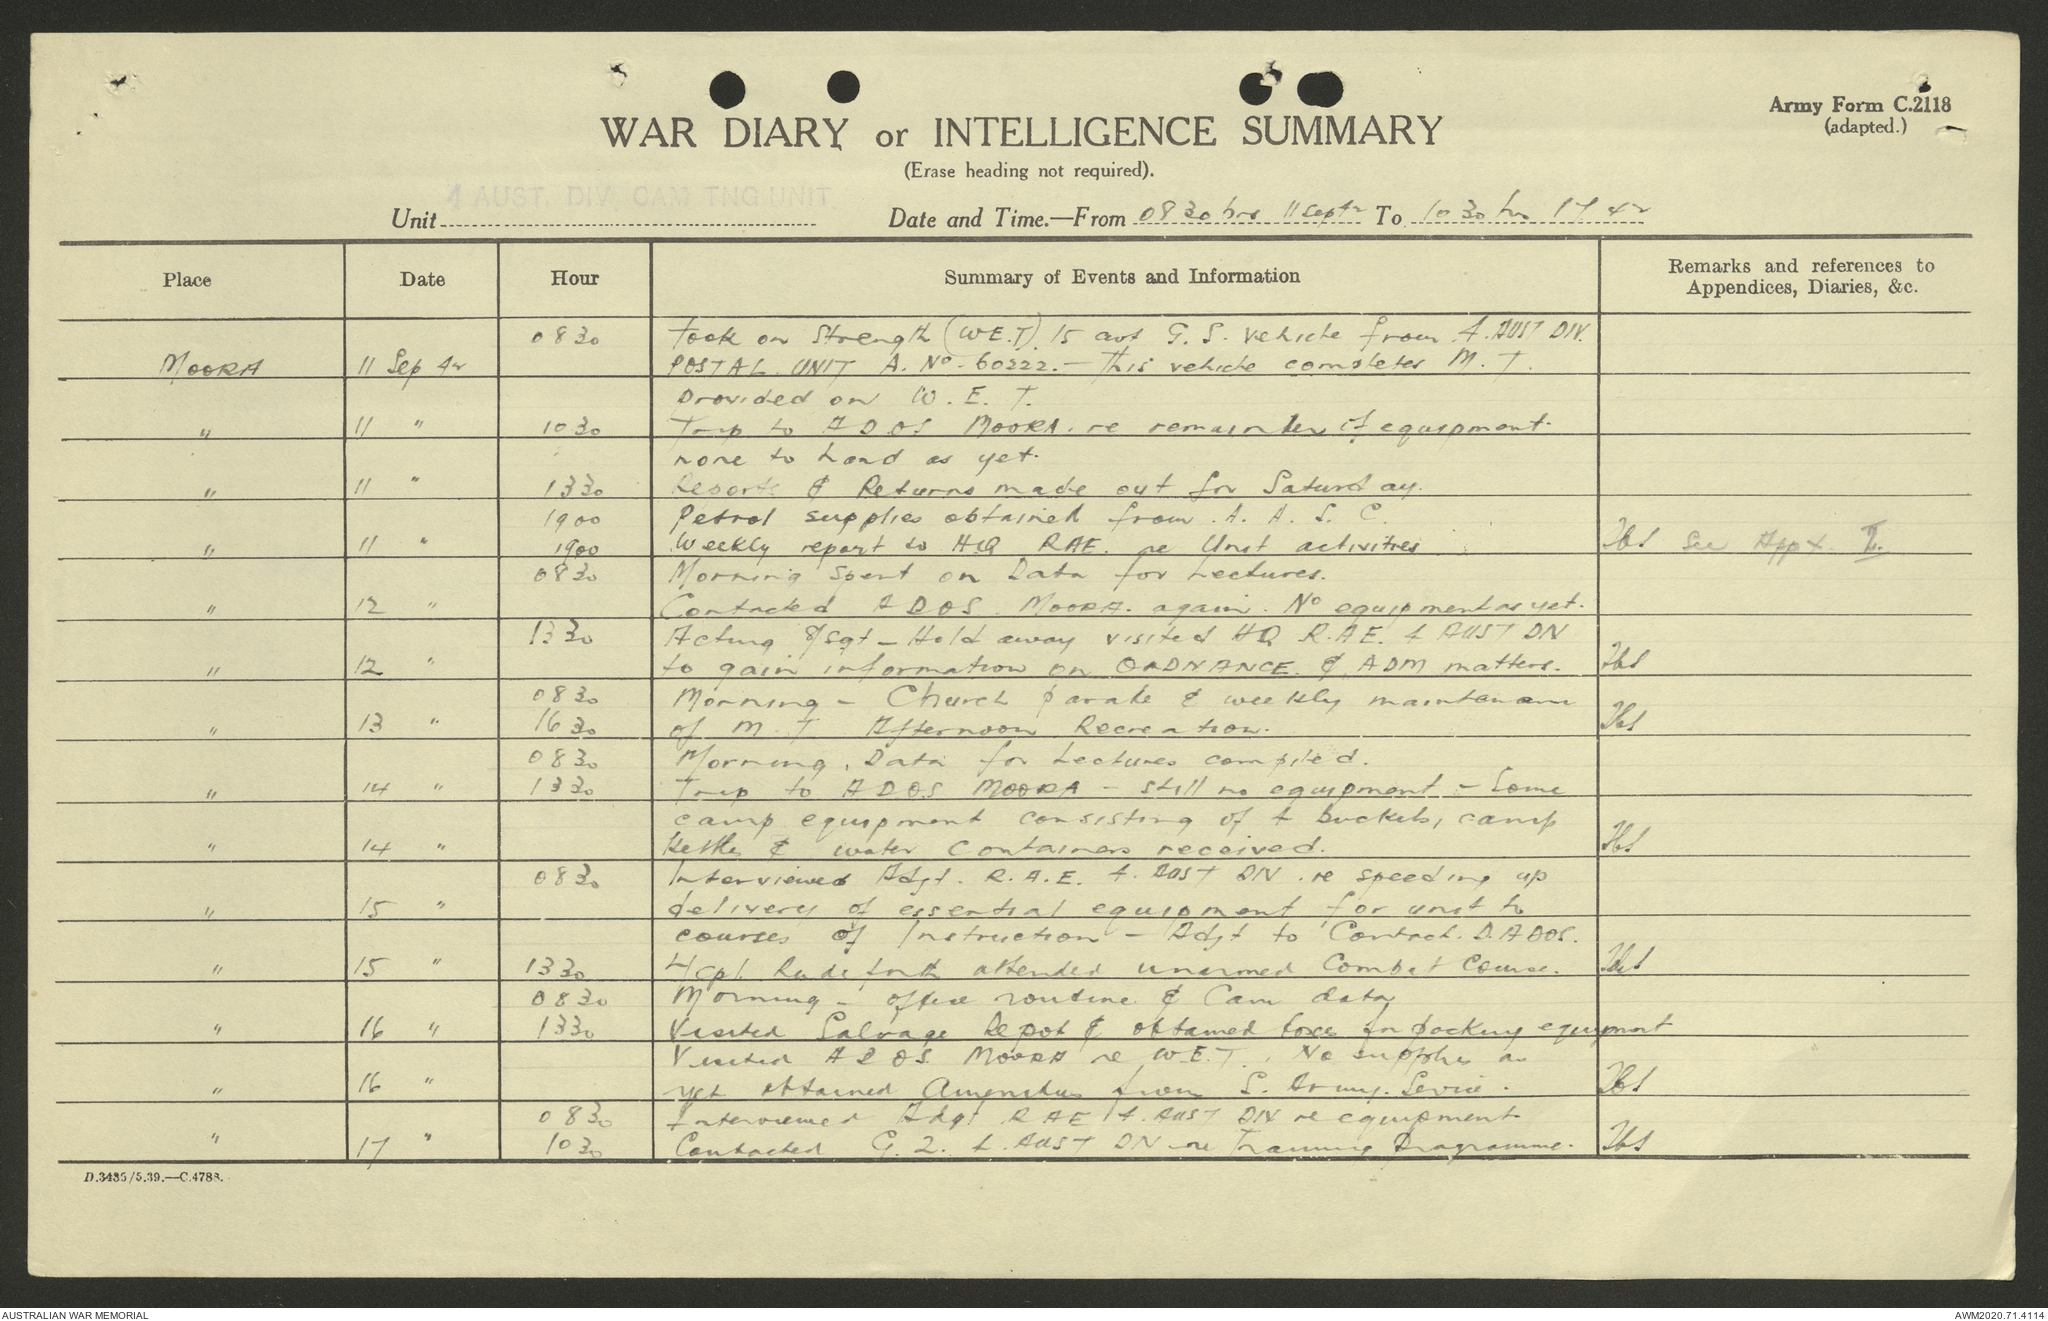 Army Form C.2118
(adapted.)
WAR DIARY or INTELLIGENCE SUMMARY
(Erase heading not required).
4 AUST. DIV. CAM TNG UNIT.
Unit Date and Time.—From 0830 hrs 11 Sept 42 To 1030 hrs 17 42
Place Date Hour Summary of Events and Information Remarks and references to
Appendices, Diaries, &c.
0830 Took on Strength (W.E.T) 15 cwt G. S. vehicle from 4. AUST DIV.
MOORA 11 Sep 42 POSTAL UNIT A. No. 60222. — This vehicle completes M. T.
provided on W. E. T.
" 11 " 1030 Trip to ADOS MOORA. re remainder of equipment.
none to hand as yet.
" 11 " 1330 Reports & Returns made out for Saturday.
1900 Petrol supplies obtained from A. A. S. C.
" 11 " 1900 Weekly report to HQ RAE. re Unit activities See App x. II.
0830 Morning spent on Data for Lectures.
" 12 " Contacted ADOS MOORA. again. No equipment as yet.
1330 Acting S/Sgt — Holdaway visited HQ R.A.E. 4 AUST DN
" 12 " to gain information on ORDNANCE & ADM matters.
0830 Morning — Church parade & weekly maintenance
" 13 " 1630 of M. T Afternoon Recreation.
0830 Morning. Data for Lectures compiled.
" 14 " 1330 Trip to ADOS MOORA — still no equipment — Some
camp equipment consisting of 4 buckets, camp
" 14 " Kettles & water containers received.
0830 Interviewed Adjt. R.A.E. 4. AUST DN. re speeding up
" 15 " delivery of essential equipment for unit to
courses of Instruction — Adjt to Contact. D.ADOS.
" 15 " 1330 L/Cpl. Rudeforth attended unarmed Combat Course.
0830 Morning — office routine & Cam data
" 16 " 1330 Visited Salvage Depot & obtained boxes for packing equipment
Visited ADOS MOORA re W.E.T. No supplies as
" 16 " yet obtained Amenities from S. Army. Service.
0830 Interviewed Adgt RAE 4. AUST DN re equipment
" 17 " 1030 Contacted G. 2. 4. AUST DN re Training Programme.
D.3435/5.39.—C.4788.
AUSTRALIAN WAR MEMORIAL AWM2020.71.4114